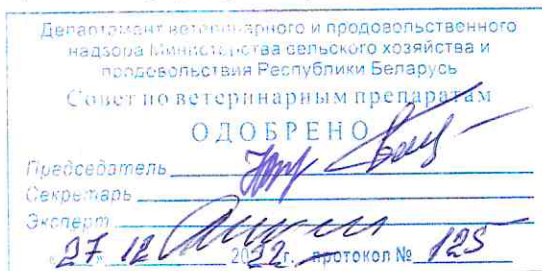 Департамент ветеринарного и продовольственного
надзора Министерства сельского хозяйства и
продовольствия Республики Беларусь
Совет по ветеринарным препаратам
ОДОБРЕНО
Председатель
Секретарь
Эксперт
«27» 12 2022г. протокол № 125